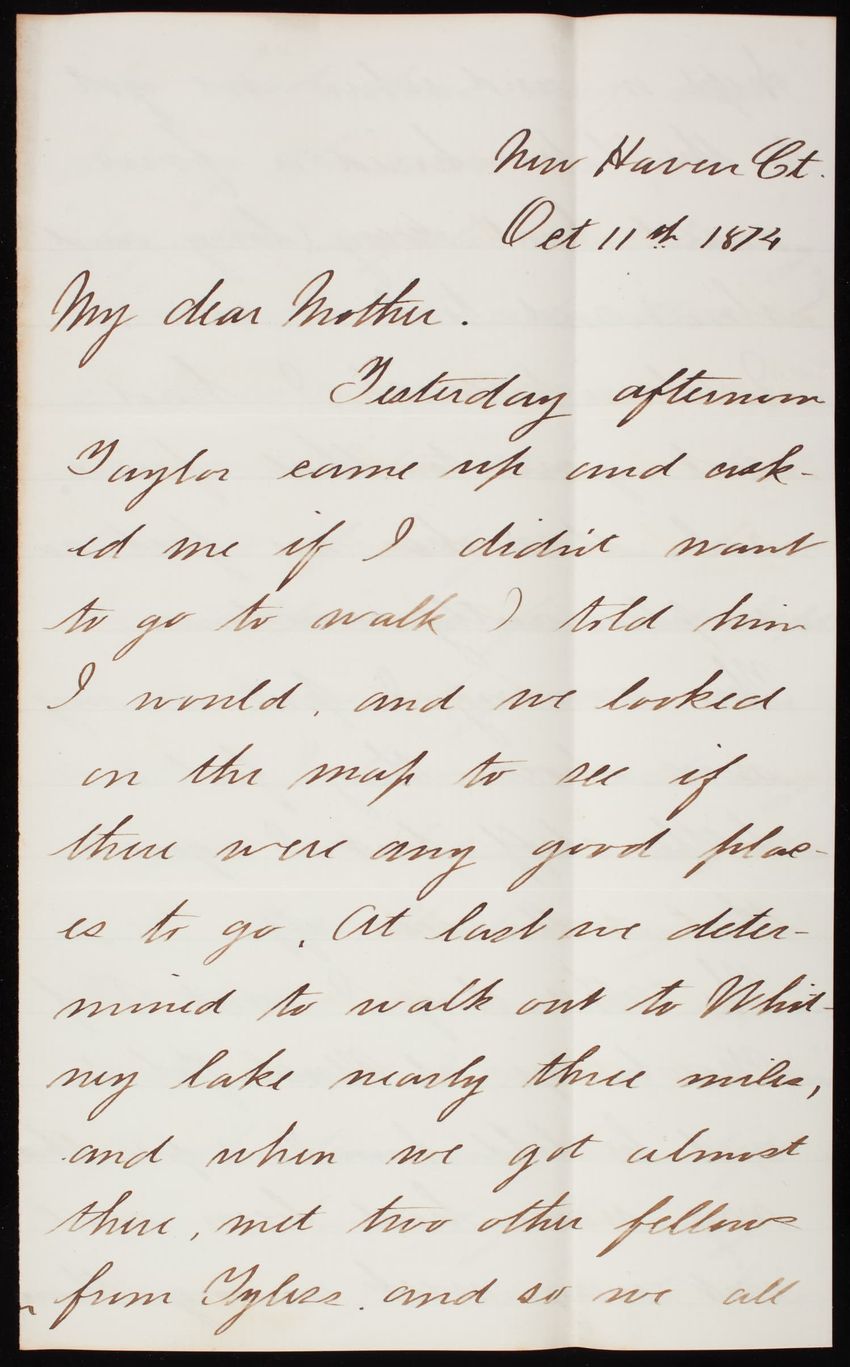 New Haven Ct.
Oct 11th 1874
My dear Mother.
Yesterday afternoon
Taylor came up and ask-
ed me if I didn't want
to go to walk I told him
I would, and we looked
on the map to see if
there were any good plac-
es to go. At last we deter-
mined to walk out to Whit-
ney lake nearly three miles,
and when we got almost
there, met two other fellows
from and so we all